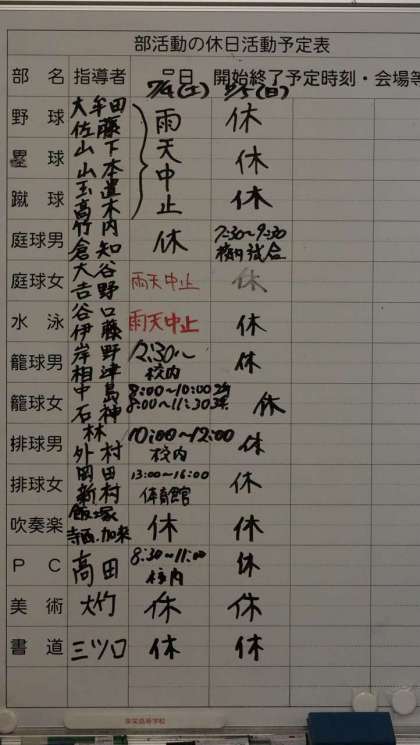 部活動の休日活動予定表
部 名 指導者 日 開始終了予定時刻・会場等
7/4(土) 7/5(日)
野 球 大牟田 佐藤 雨天中止 休
塁 球 山下 山本 休
蹴 球 玉置 高木 休
庭球男 竹内 倉知 休 7:30〜9:30 校内試合
庭球女 大谷 吉野 雨天中止 休
水 泳 谷口 伊藤 雨天中止 休
籠球男 岸野 相津 12:30〜 校内 休
籠球女 中島 石神 8:00〜10:00 8:00〜11:30 休
排球男 林 外村 10:00〜12:00 校内 休
排球女 岡田 新村 13:00〜16:00 体育館 休
吹奏楽 飯塚 寺西・加来 休 休
PC 高田 8:30〜11:00 校内 休
美 術 大竹 休 休
書 道 三ツ口 休 休